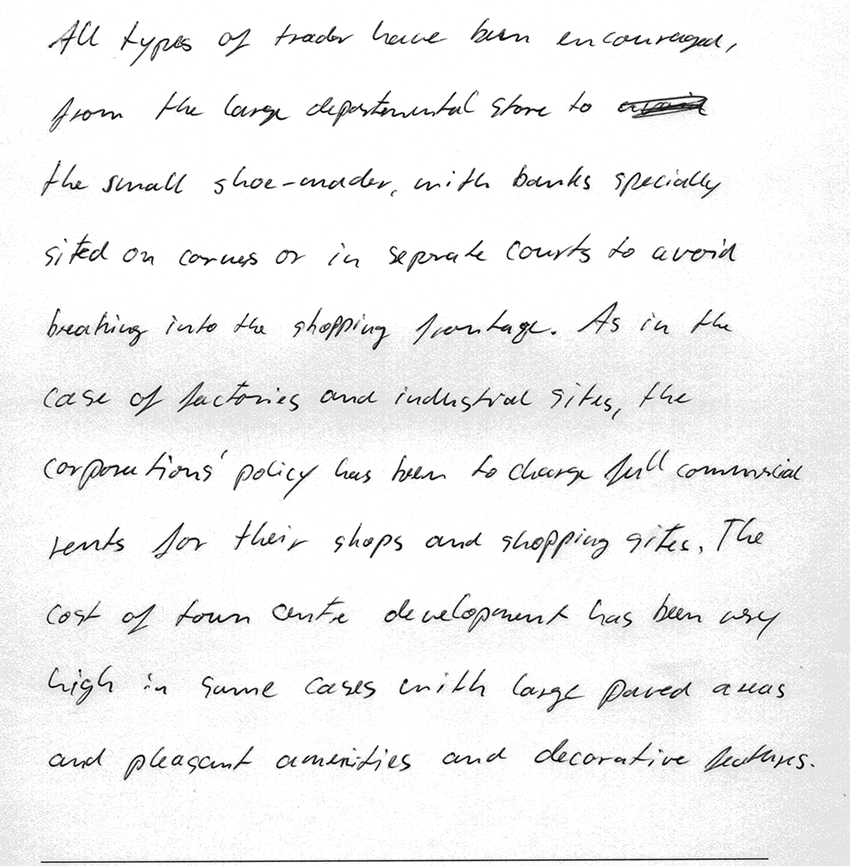 All types of trader have been encouraged,
from the large departemental store to
the small shoe-mader, with banks specially
sited on corners or in seperate courts to avoid
breaking into the shopping frontage. As in the
case of factories and industrial sites, the
corporations' policy has been to charge full commercial
rents for their shops and shopping sites. The
cost of town centre development has been very
high in some cases with large paved areas
and pleasant amenities and decorative features.